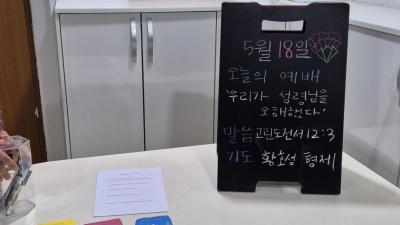 5월 18일
오늘의 예배
'우리가 성령님을
오해했다'
말씀 고린도전서 12:3
기도 황호성 형제